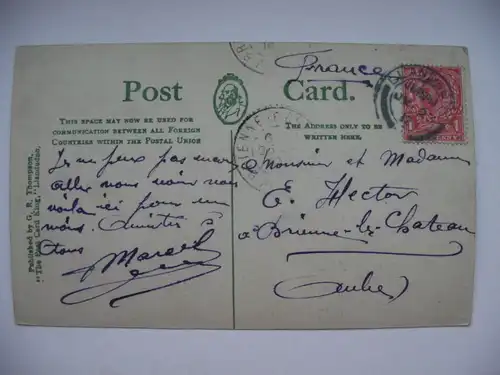 France
Post Card.
THIS SPACE MAY NOW BE USED FOR
COMMUNICATION BETWEEN ALL FOREIGN
COUNTRIES WITHIN THE POSTAL UNION
THE ADDRESS ONLY TO BE
WRITTEN HERE.
Published by G. R. Thompson,
"The Post Card King," Llandudno.
Je ne peux pas encore
aller vous voir
voilà ici pour un
mois. Amitiés à
tous
Marcel
Monsieur et Madame
E. Hector
à Brienne-le-Chateau
(Aube)